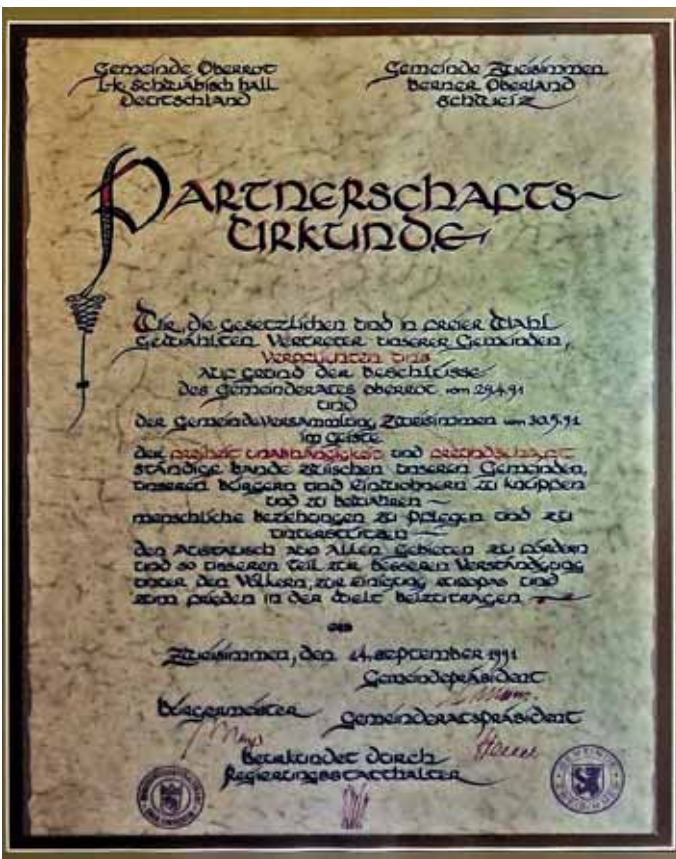 Gemeinde Oberrot
L-k. Schwäbisch Hall
Deutschland
Gemeinde Zweisimmen
Berner Oberland
Schweiz
Partnerschafts-
urkunde
Wir, die gesetzlichen und in freier Wahl
gewählten Vertreter unserer Gemeinden,
verpflichten uns
auf Grund der Beschlüsse
des Gemeinderats Oberrot vom 29.4.91
und
der Gemeindeversammlung Zweisimmen vom 30.5.91
im Geiste
der Freiheit Unabhängigkeit und Freundschaft
ständige Bande zwischen unseren Gemeinden,
unseren Bürgern und Einwohnern zu knüpfen
und zu bewahren
menschliche Beziehungen zu pflegen und zu
unterstützen
den Austausch auf allen Gebieten zu fördern
und so unseren Teil zur besseren Verständigung
unter den Völkern, zur Einigung Europas und
zum Frieden in der Welt beizutragen
Zweisimmen, den 14. September 1991
Gemeindepräsident
Bürgermeister
Gemeinderatspräsident
Beurkundet durch
Regierungsstatthalter
GEMEINDE
ZWEISIMMEN